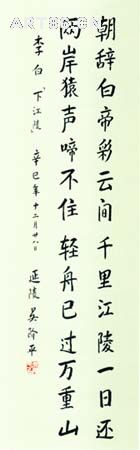 朝辞白帝彩云间千里江陵一日还
两岸猿声啼不住轻舟已过万重山
李白下江陵 辛巳年十二月廿八日 延陵吴俊平